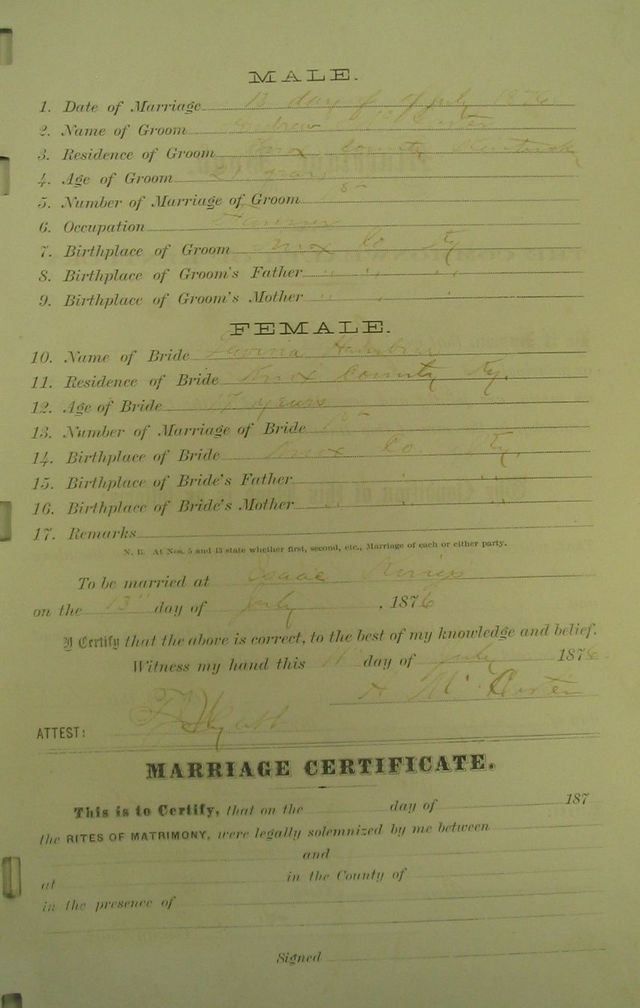 MALE.
1. Date of Marriage 13 day of July 1876
2. Name of Groom Andrew
3. Residence of Groom Knox County Kentucky
4. Age of Groom years
5. Number of Marriage of Groom
6. Occupation Farmer
7. Birthplace of Groom Knox Co Ky
8. Birthplace of Groom's Father " " "
9. Birthplace of Groom's Mother " " "
FEMALE.
10. Name of Bride
11. Residence of Bride Knox County Ky.
12. Age of Bride 17 years
13. Number of Marriage of Bride
14. Birthplace of Bride Knox Co Ky.
15. Birthplace of Bride's Father " " "
16. Birthplace of Bride's Mother " " "
17. Remarks
N. B. At Nos. 5 and 13 state whether first, second, etc., Marriage of each or either party.
To be married at Isaac
on the 13" day of July, 1876
I Certify that the above is correct, to the best of my knowledge and belief.
Witness my hand this 11 day of July 1876
A
ATTEST:
MARRIAGE CERTIFICATE.
This is to Certify, that on the day of 187
the RITES OF MATRIMONY, were legally solemnized by me between
and
at in the County of
in the presence of
Signed